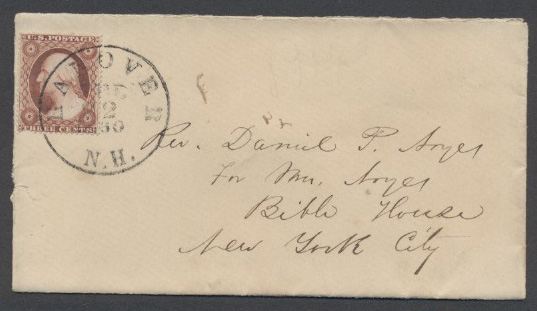 U.S. POSTAGE
THREE CENTS
HANOVER
N.H.
Rev. Daniel P. Noyes
For Mrs. Noyes
Bible House
New York City